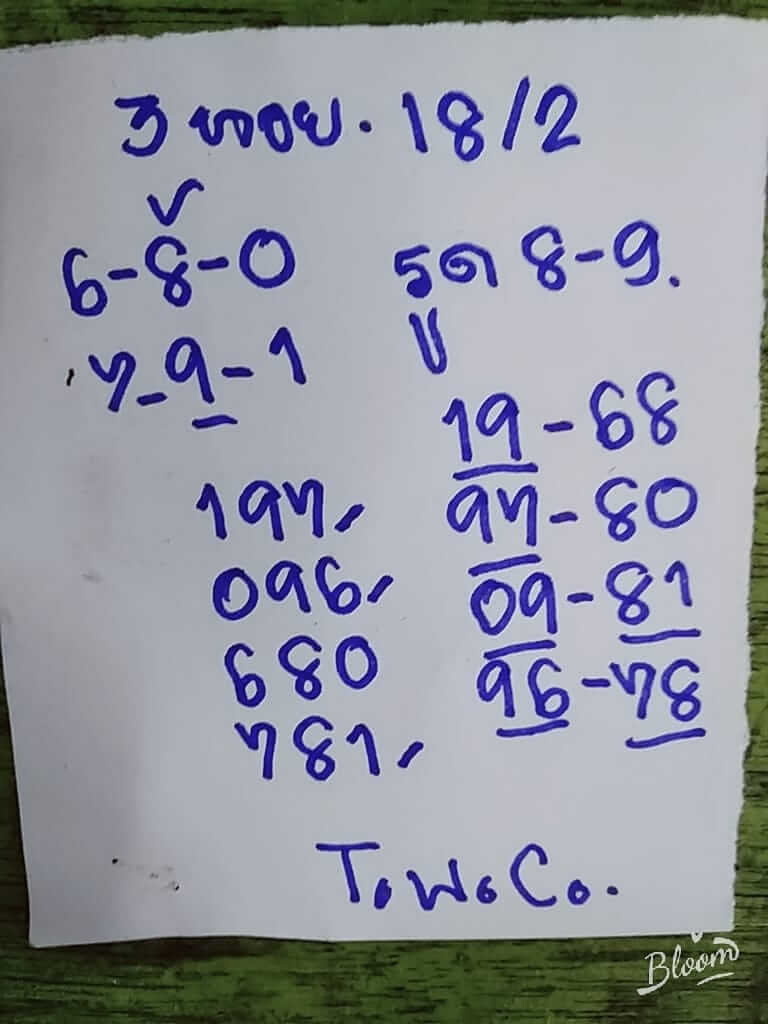 3 18/2
6-8-0 รูด 8-9.
7-9-1
19-68
197, 97-80
096, 09-81
680 96-78
781,
T.W.Co.
Bloom